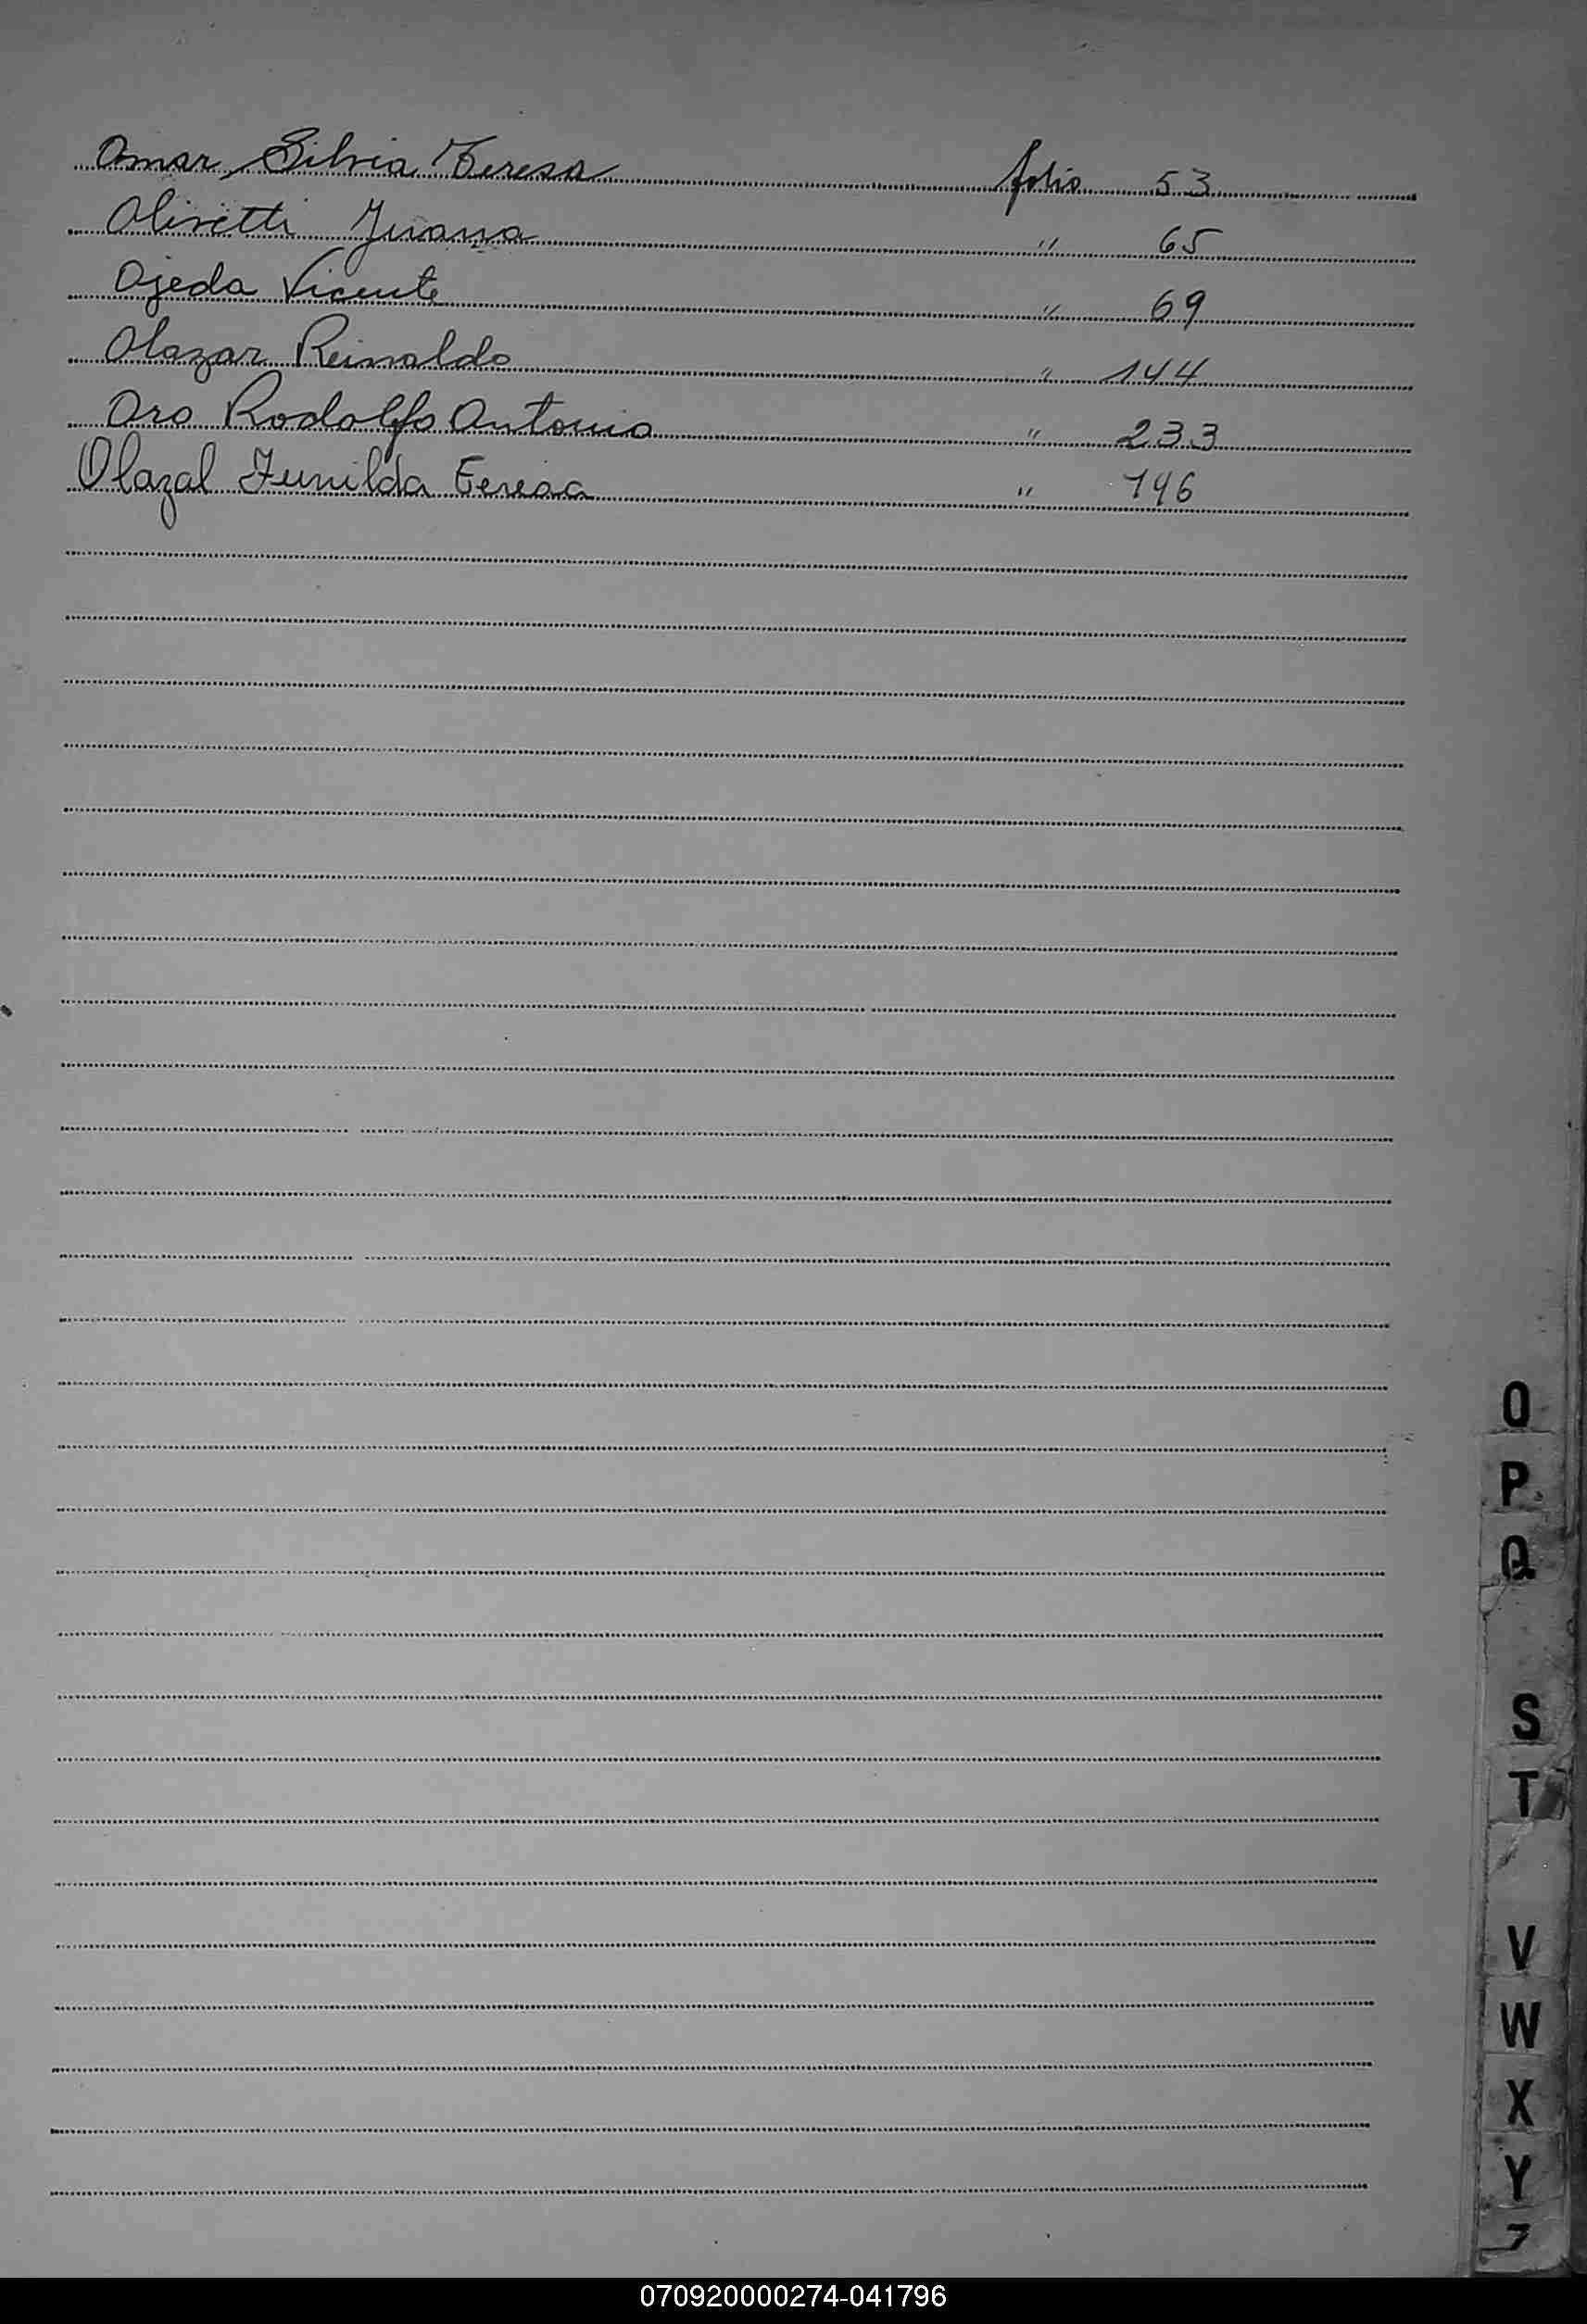 Omar, Silvia Teresa folio 53
Olivetti Juana " 65
Ojeda Vicente " 69
Olazar Reinaldo " 144
Oro Rodolfo Antonio " 233
Olazal Teresa " 196
O
P
Q
S
T
V
W
X
Y
Z
070920000274-041796